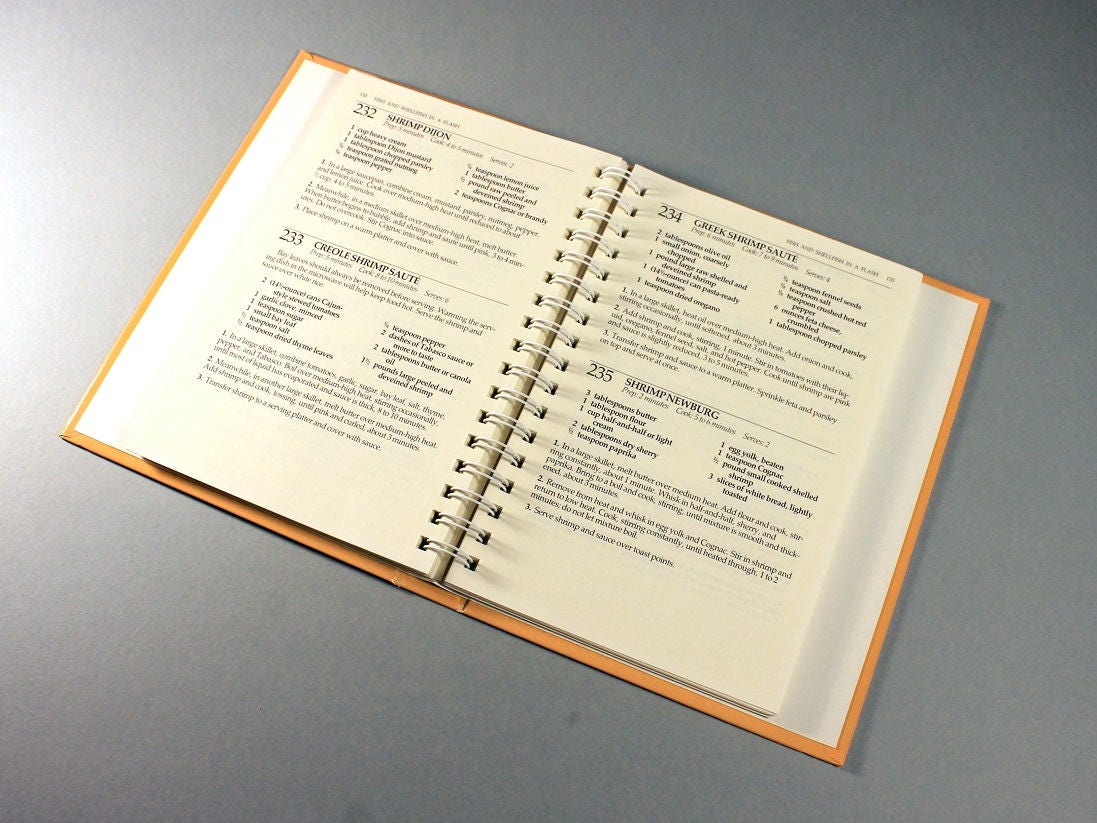 132 FISH AND SHELLFISH IN A FLASH
232 SHRIMP DIJON
Prep: 5 minutes Cook: 4 to 5 minutes Serves: 2
1 cup heavy cream
1 tablespoon Dijon mustard
1 tablespoon chopped parsley
teaspoon grated nutmeg
teaspoon pepper
teaspoon lemon juice
1 tablespoon butter
½ pound raw peeled and
deveined shrimp
2 teaspoons Cognac or brandy
1. In a large saucepan, combine cream, mustard, parsley, nutmeg, pepper,
and lemon juice. Cook over medium-high heat until reduced to about
cup, 4 to 5 minutes.
2. Meanwhile, in a medium skillet over medium-high heat, melt butter.
When butter begins to bubble, add shrimp and sauté until pink, 3 to 4 min-
utes. Do not overcook. Stir Cognac into sauce.
3. Place shrimp on a warm platter and cover with sauce.
233 CREOLE SHRIMP SAUTÉ
Prep: 5 minutes Cook: 8 to 10 minutes Serves: 6
Bay leaves should always be removed before serving. Warming the serv-
ing dish in the microwave will help keep food hot. Serve the shrimp and
sauce over white rice.
2 (14½-ounce) cans Cajun-
style stewed tomatoes
1 garlic clove, minced
1 teaspoon sugar
1 small bay leaf
½ teaspoon salt
½ teaspoon dried thyme leaves
¼ teaspoon pepper
2 dashes of Tabasco sauce or
more to taste
2 tablespoons butter or canola
oil
1½ pounds large peeled and
deveined shrimp
1. In a large skillet, combine tomatoes, garlic, sugar, bay leaf, salt, thyme,
pepper, and Tabasco. Boil over medium-high heat, stirring occasionally,
until most of liquid has evaporated and sauce is thick, 8 to 10 minutes.
2. Meanwhile, in another large skillet, melt butter over medium-high heat.
Add shrimp and cook, tossing, until pink and curled, about 3 minutes.
3. Transfer shrimp to a serving platter and cover with sauce.
FISH AND SHELLFISH IN A FLASH 133
234 GREEK SHRIMP SAUTÉ
Prep: 6 minutes Cook: 7 to 9 minutes Serves: 4
2 tablespoons olive oil
1 small onion, coarsely
chopped
1 pound large raw shelled and
deveined shrimp
1 (14½-ounce) can pasta-ready
tomatoes
1 teaspoon dried oregano
teaspoon fennel seeds
teaspoon salt
teaspoon crushed hot red
pepper
6 ounces feta cheese,
crumbled
1 tablespoon chopped parsley
1. In a large skillet, heat oil over medium-high heat. Add onion and cook,
stirring occasionally, until softened, about 3 minutes.
2. Add shrimp and cook, stirring, 1 minute. Stir in tomatoes with their liq-
uid, oregano, fennel seed, salt, and hot pepper. Cook until shrimp are pink
and sauce is slightly reduced, 3 to 5 minutes.
3. Transfer shrimp and sauce to a warm platter. Sprinkle feta and parsley
on top and serve at once.
235 SHRIMP NEWBURG
Prep: 2 minutes Cook: 5 to 6 minutes Serves: 2
3 tablespoons butter
1 tablespoon flour
1 cup half-and-half or light
cream
2 tablespoons dry sherry
½ teaspoon paprika
1 egg yolk, beaten
1 teaspoon Cognac
½ pound small cooked shelled
shrimp
3 slices of white bread, lightly
toasted
1. In a large skillet, melt butter over medium heat. Add flour and cook, stir-
ring constantly, about 1 minute. Whisk in half-and-half, sherry, and
paprika. Bring to a boil and cook, stirring, until mixture is smooth and thick-
ened, about 3 minutes.
2. Remove from heat and whisk in egg yolk and Cognac. Stir in shrimp and
return to low heat. Cook, stirring constantly, until heated through, 1 to 2
minutes; do not let mixture boil.
3. Serve shrimp and sauce over toast points.